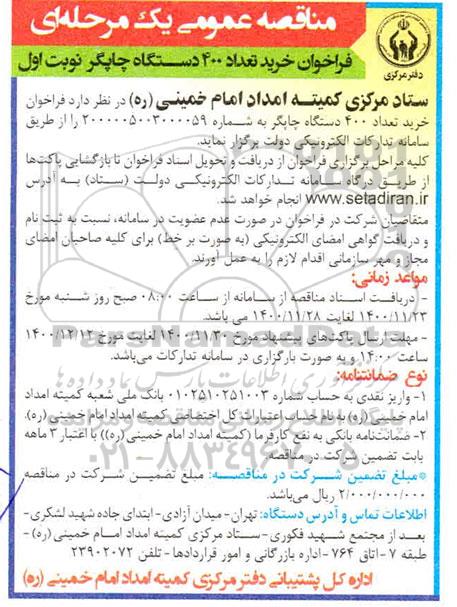 مناقصه عمومی یک مرحله‌ای
دفتر مرکزی
فراخوان خرید تعداد ۴۰۰ دستگاه چاپگر نوبت اول
ستاد مرکزی کمیته امداد امام خمینی (ره) در نظر دارد فراخوان
خرید تعداد ۴۰۰ دستگاه چاپگر به شماره ۲۰۰۰۰۰۵۰۰۳۰۰۰۰۵۹ را از طریق
سامانه تدارکات الکترونیکی دولت برگزار نماید.
کلیه مراحل برگزاری فراخوان از دریافت و تحویل اسناد فراخوان تا بازگشایی پاکت‌ها
از طریق درگاه سامانه تدارکات الکترونیکی دولت (ستاد) به آدرس
www.setadiran.ir انجام خواهد شد.
متقاضیان شرکت در فراخوان در صورت عدم عضویت در سامانه، نسبت به ثبت نام
و دریافت گواهی امضای الکترونیکی (به صورت بر خط) برای کلیه صاحبان امضای
مجاز و مهر سازمانی اقدام لازم را به عمل آورند.
مواعد زمانی:
- دریافت اسناد مناقصه از سامانه از ساعت ۰۸:۰۰ صبح روز شنبه مورخ
۱۴۰۰/۱۱/۲۳ لغایت ۱۴۰۰/۱۱/۲۸ می باشد.
- مهلت ارسال پاکت‌های پیشنهاد مورخ ۱۴۰۰/۱۱/۳۰ لغایت مورخ ۱۴۰۰/۱۲/۱۲
ساعت ۱۴:۰۰ و به صورت بارگزاری در سامانه تدارکات می‌باشد.
نوع ضمانتنامه:
۱- واریز نقدی به حساب شماره ۰۱۰۲۵۱۰۲۵۱۰۰۳ بانک ملی شعبه کمیته امداد
امام خمینی (ره) به نام حساب اعتبارات کل اختصاصی کمیته امداد امام خمینی (ره).
۲- ضمانت‌نامه بانکی به نفع کارفرما (کمیته امداد امام خمینی (ره)) با اعتبار ۳ ماهه
بابت تضمین شرکت در مناقصه
*مبلغ تضمین شرکت در مناقصه: مبلغ تضمین شرکت در مناقصه
۲/۰۰۰/۰۰۰/۰۰۰ ریال می‌باشد.
اطلاعات تماس و آدرس دستگاه: تهران- میدان آزادی- ابتدای جاده شهید لشکری-
بعد از مجتمع شهید فکوری- ستاد مرکزی کمیته امداد امام خمینی (ره)-
طبقه ۷- اتاق ۷۶۴- اداره بازرگانی و امور قراردادها- تلفن ۲۳۹۰۲۰۷۲
اداره کل پشتیبانی دفتر مرکزی کمیته امداد امام خمینی (ره)